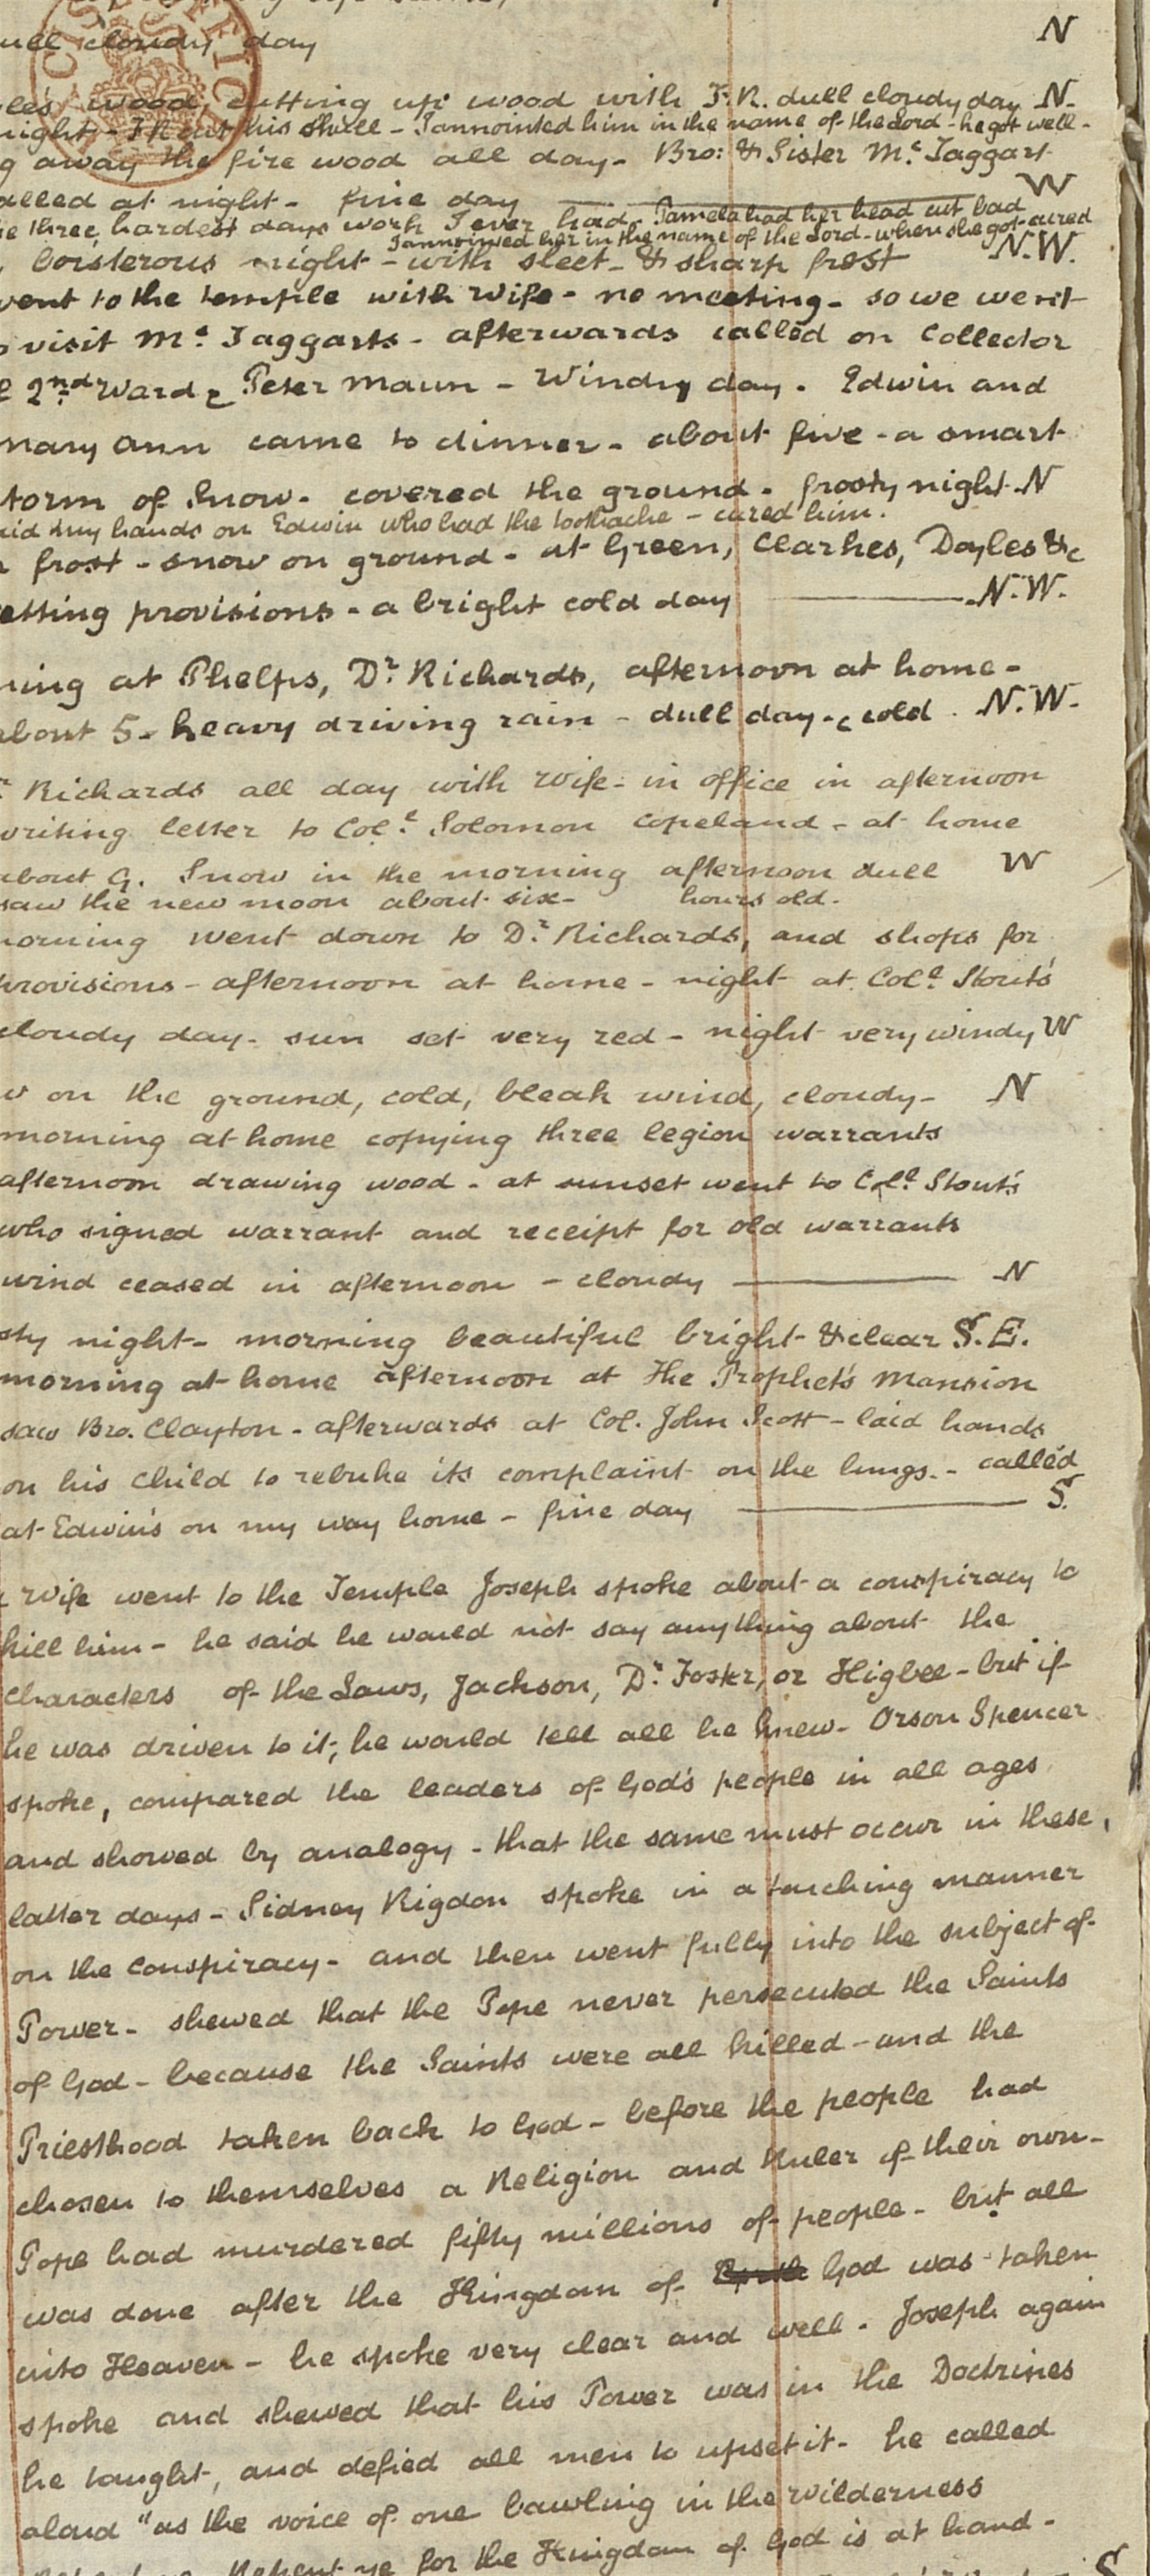 dull cloudy day N
wood, cutting up wood with F.R. dull cloudy day N.
night - FR cut his shull - I annointed him in the name of the Lord - he got well -
away the fire wood all day - Bro: & Sister Mc Taggart
called at night - fine day W
three hardest days work I ever had - Pamela had her head cut bad
I annointed her in the name of the Lord - when she got cured
boisterous night - with sleet - & sharp frost N.W.
went to the temple with wife - no meeting - so we went
visit Mc Taggarts - afterwards called on Collector
2nd Ward & Peter Maun - Windy day . Edwin and
Mary Ann came to dinner - about five - a smart
storm of Snow - covered the ground - frosty night - N
laid my hands on Edwin who had the toothache - cured him .
frost - snow on ground - at Green, Clarkes, Doyles &c
getting provisions - a bright cold day N.W.
ning at Phelps, Dr Richards, afternoon at home -
about 5 - heavy driving rain - dull day - & cold . N.W.
Richards all day with wife - in office in afternoon
writing letter to Coll Solomon Copeland - at home
about 9. Snow in the morning afternoon dull W
saw the new moon about six - hours old -
morning went down to Dr Richards, and shops for
provisions - afternoon at home - night at Coll Stout's
cloudy day - sun set very red - night very windy W
on the ground, cold, bleak wind, cloudy - N
morning at home copying three legion warrants
afternoon drawing wood - at sunset went to Coll Stout's
who signed warrant and receipt for old warrants
wind ceased in afternoon - cloudy N
sty night - morning beautiful bright & clear S.E.
morning at home afternoon at the Prophet's Mansion
saw Bro. Clayton - afterwards at Col. John Scott - laid hands
on his child to rebuke its complaint on the lungs - called
at Edwin's on my way home - fine day S.
Wife went to the Temple Joseph spoke about a conspiracy to
kill him - he said he would not say anything about the
characters of the Laws, Jackson, Dr Foster, or Higbee - but if
he was driven to it, he would tell all he knew - Orson Spencer
spoke, compared the leaders of God's people in all ages
and showed by analogy - that the same must occur in these
latter days - Sidney Rigdon spoke in a touching manner
on the conspiracy - and then went fully into the subject of
Power - shewed that the Pope never persecuted the Saints
of God - because the Saints were all killed - and the
Priesthood taken back to God - before the people had
chosen to themselves a Religion and Ruler of their own -
Pope had murdered fifty millions of people - but all
was done after the Kingdom of God was taken
into Heaven - he spoke very clear and well . Joseph again
spoke and shewed that his Power was in the Doctrines
he taught, and defied all men to upset it - he called
aloud "as the voice of one bawling in the wilderness
Repent ye for the Kingdom of God is at hand -
S